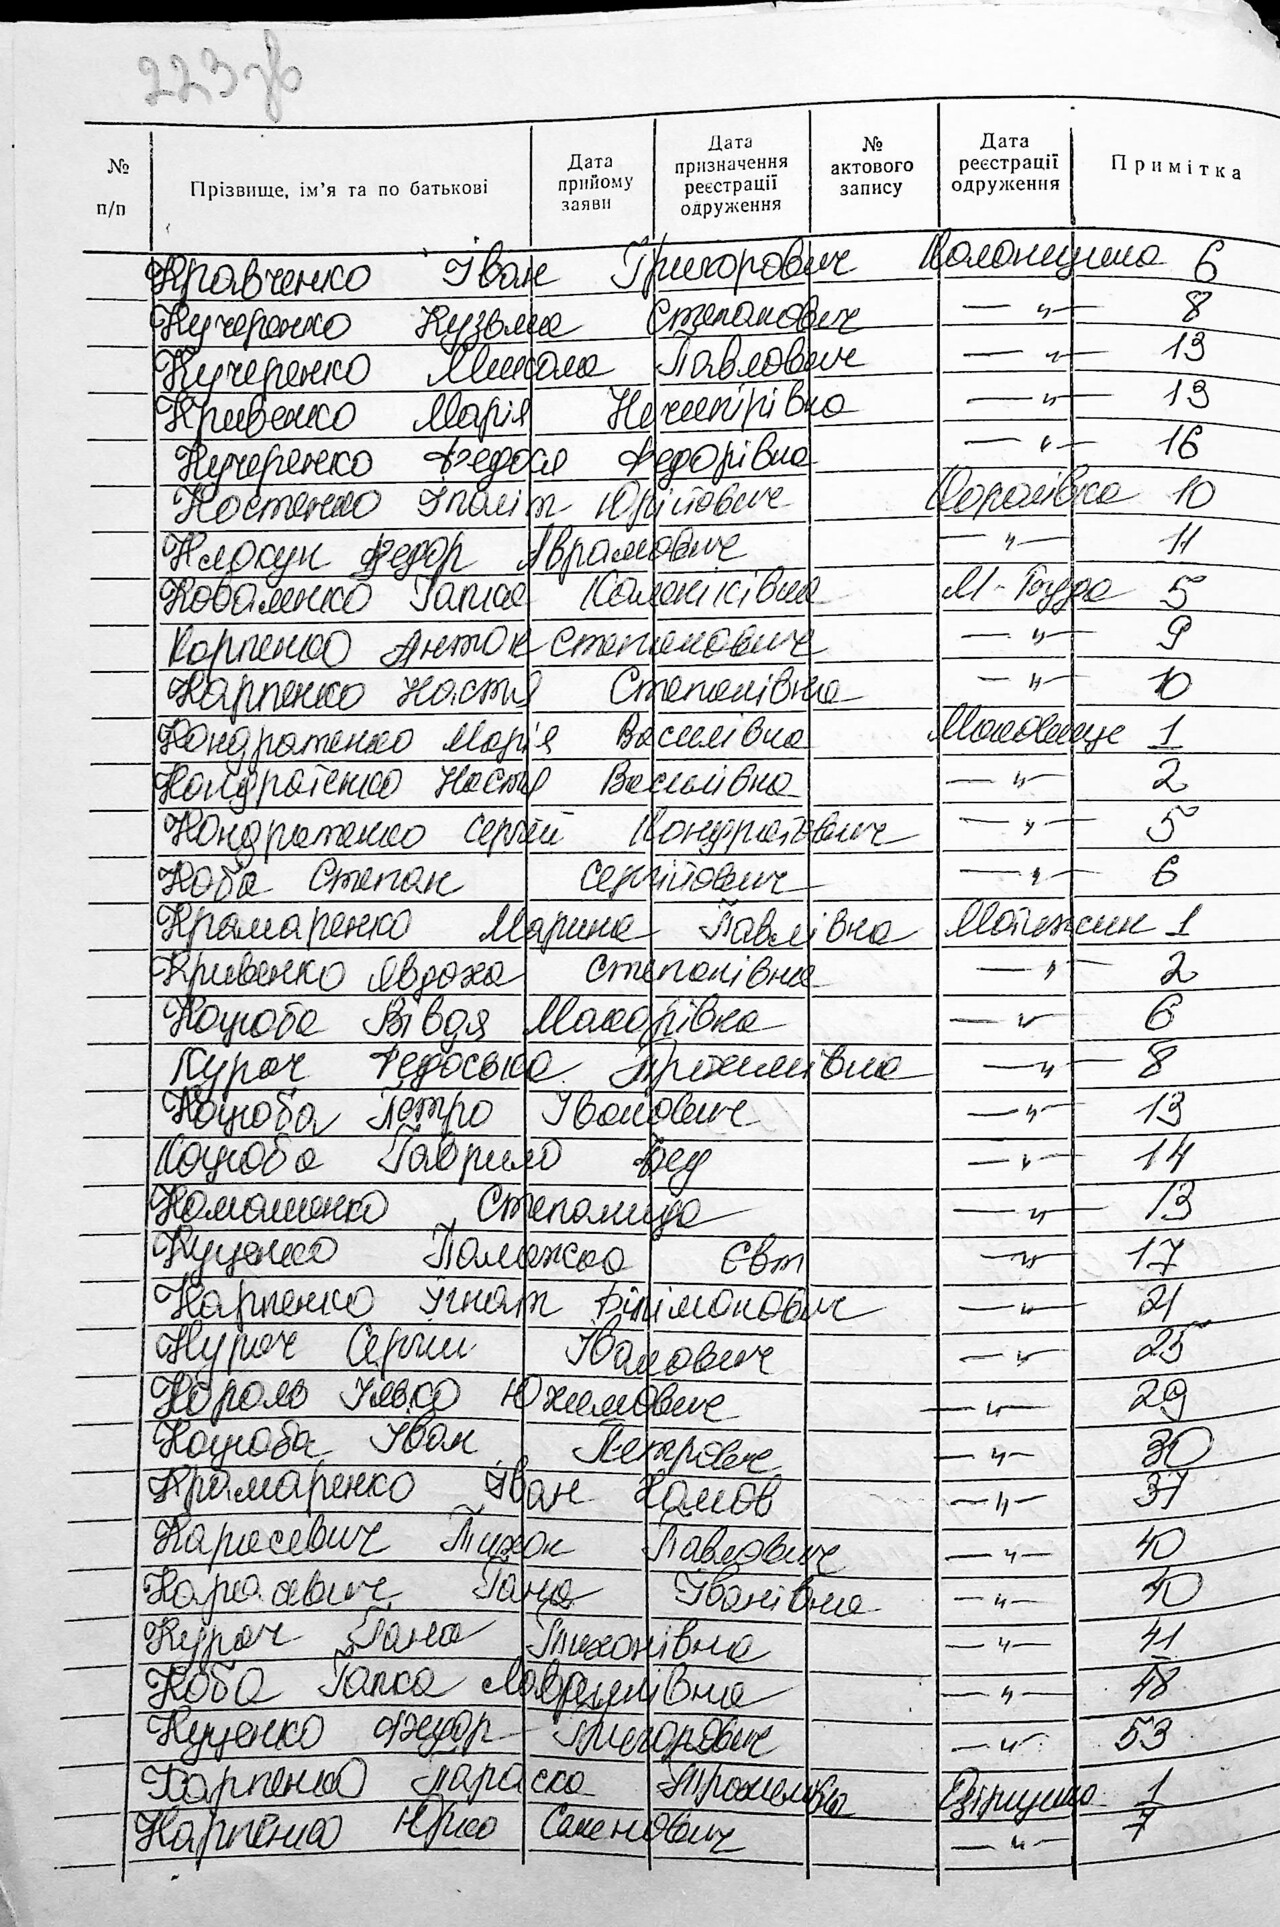 223 зв
№ п/п
Прізвище, ім'я та по батькові
Дата прийому заяви
Дата призначення реєстрації одруження
№ актового запису
Дата реєстрації одруження
Примітка
Кравченко Іван Григорович 6
Кучеренко Кузьма Степанович — " — 8
Кучеренко Микола Павлович — " — 13
Кривенко Марія Ничипірівна — " — 13
Кучеренко Федося Федорівна — " — 16
Костенко Іполіт Юрійович Королівка 10
Клокун Федор Аврамович — " — 11
Коваленко Гапка Каленіківна М-Буда 5
Карпенко Антон Степанович — " — 9
Карпенко Настя Степанівна — " — 10
Кондратенко Марія Василівна Маковище 1
Кондратенко Настя Василівна — " — 2
Кондратенко Сергій Кондратович — " — 5
Коба Степан Сергійович — " — 6
Крамаренко Марина Павлівна Мотижин 1
Кривенко Явдоха Степанівна — " — 2
Коцюба Вівдя Макарівна — " — 6
Курач Федоська — " — 8
Коцюба Петро Іванович — " — 13
Коцюба Гаврило Фед — " — 14
Комашенко Степанида — " — 13
Куценко Палажка Євт — " — 17
Карпенко Ігнат Філімонович — " — 21
Курач Сергій Іванович — " — 25
Король Ілько Юхимович — " — 29
Коцюба Іван Петрович — " — 30
Крамаренко Іван Хамов — " — 37
Карасевич Тихон Павлович — " — 40
Карасевич Ганна Іванівна — " — 40
Курач Ганна Тихонівна — " — 41
Коба Гапка — " — 48
Куценко Федор Григорович — " — 53
Карпенко Параска 1
Карпенко Юрко Семенович — " — 7